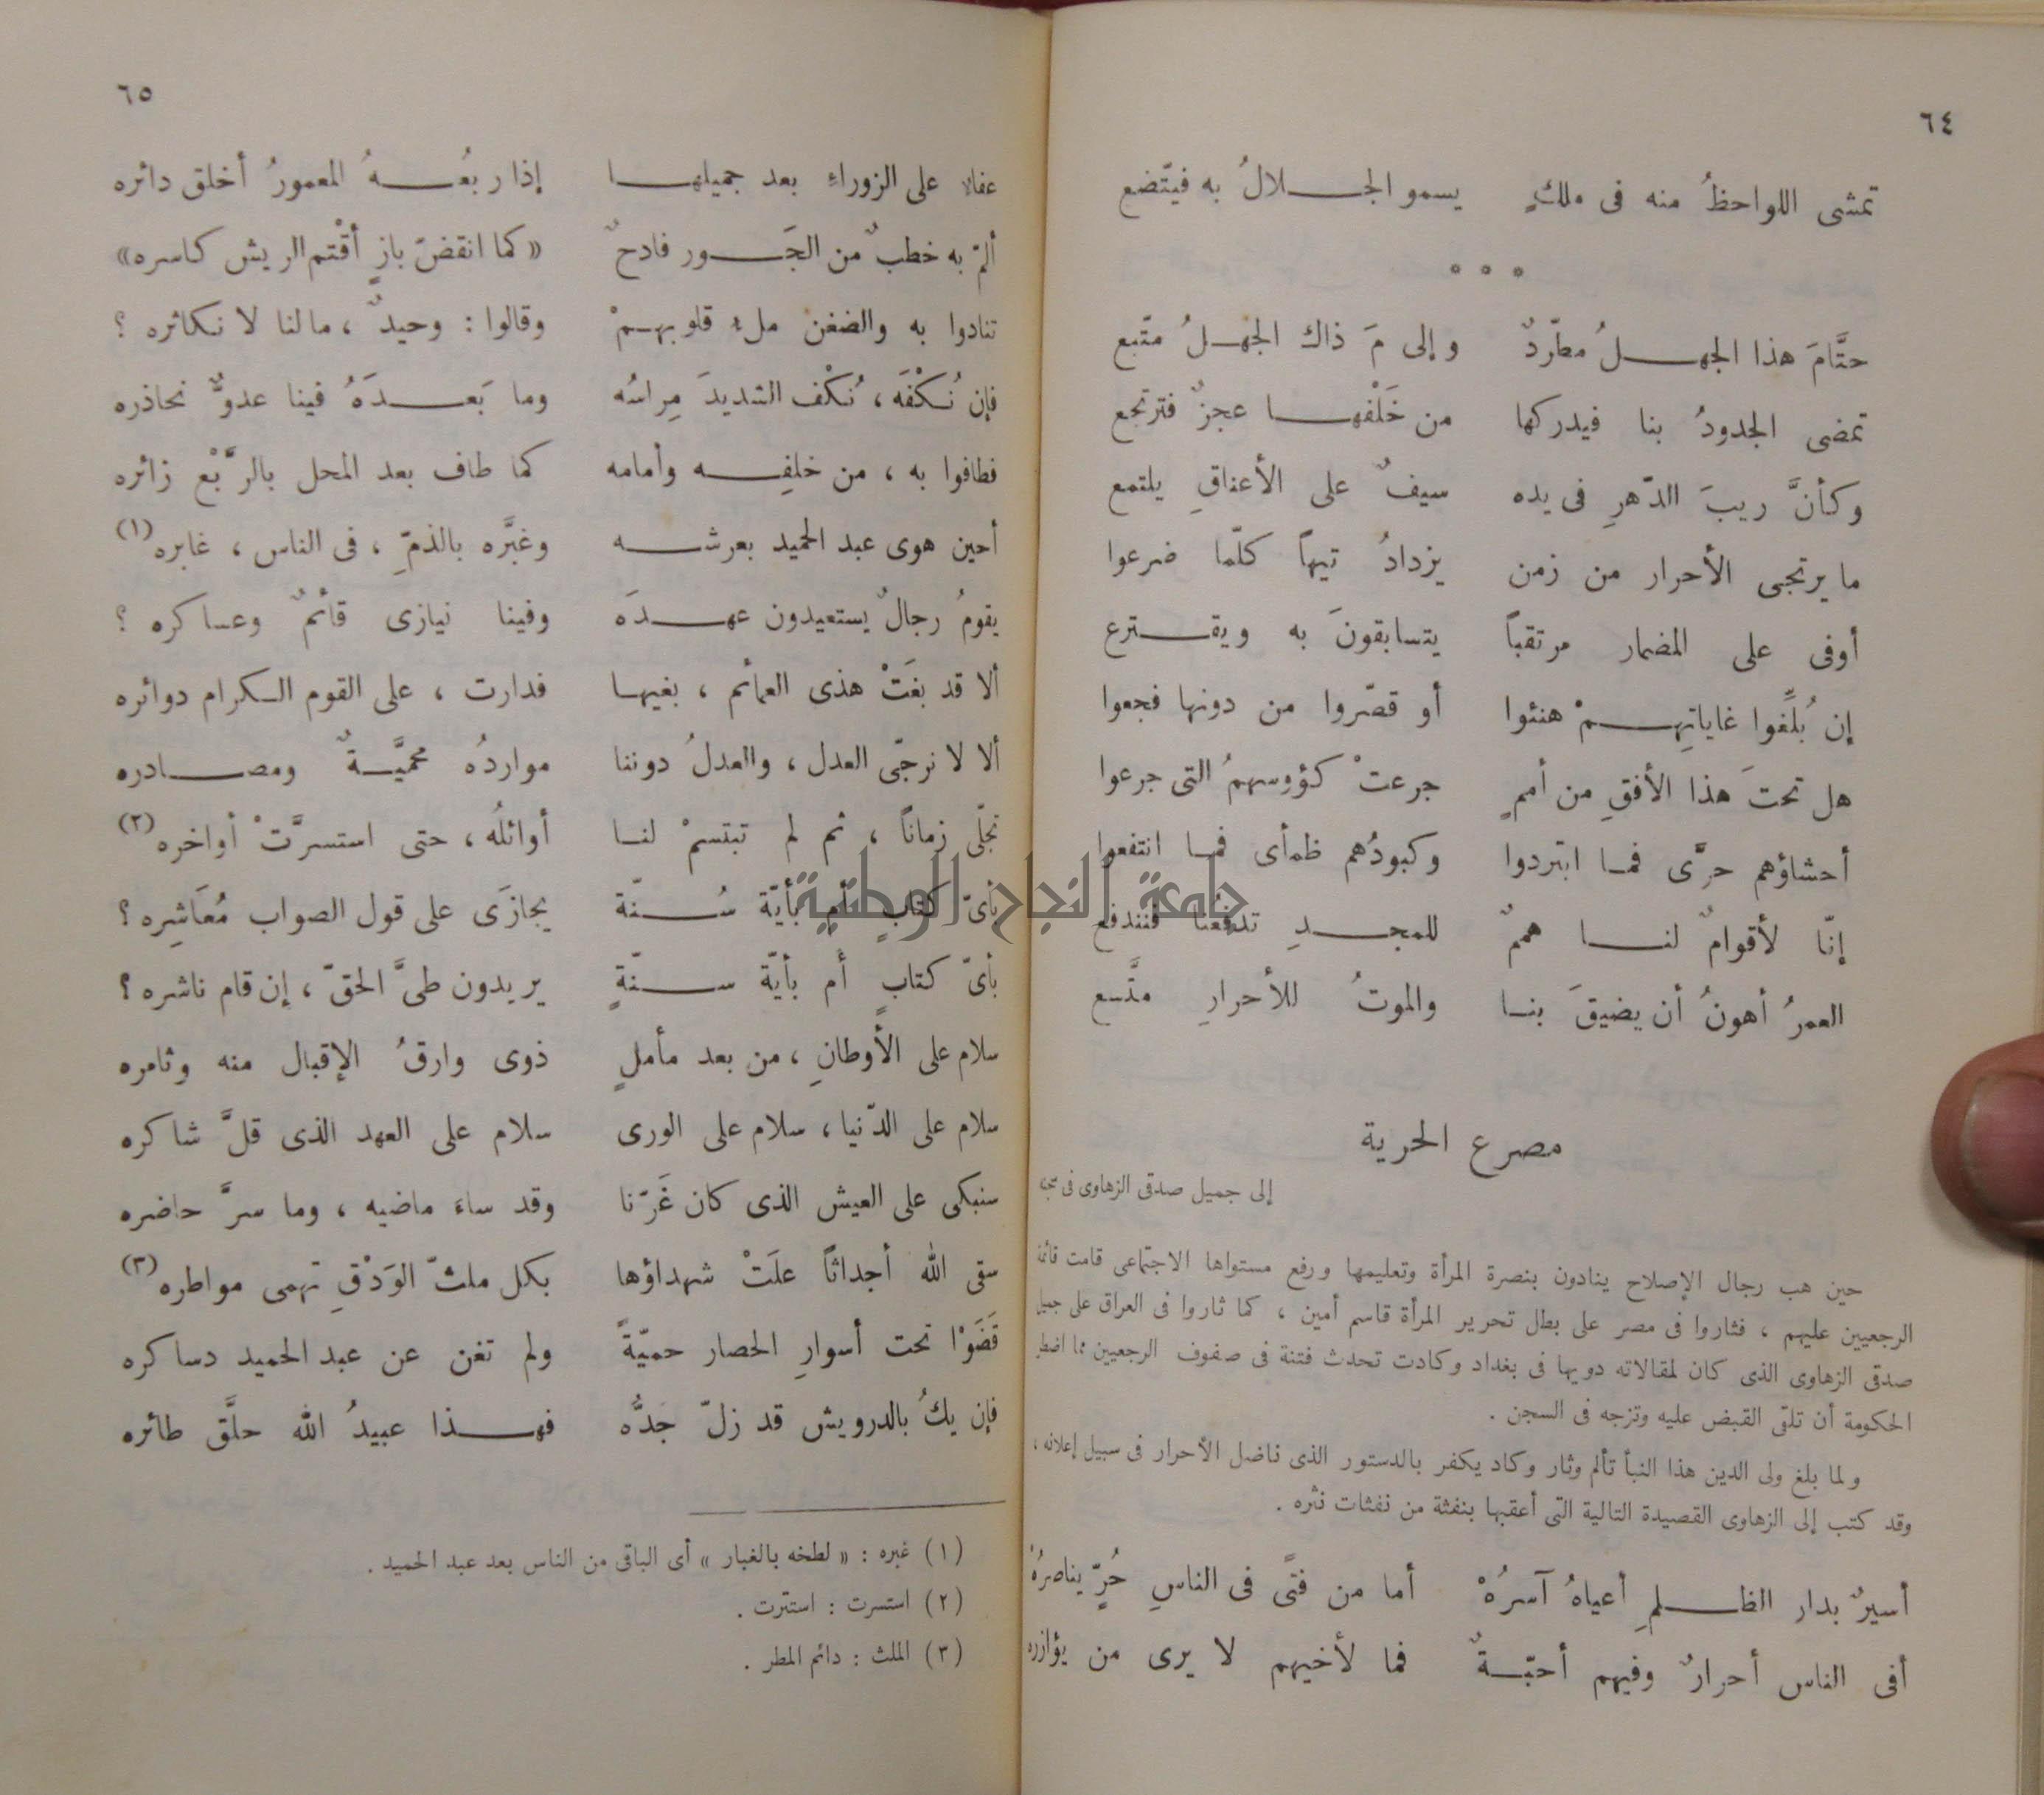 ٦٤
تمشى اللواحظُ منه فى ملكٍ يسمو الجـــلالُ به فيتّضع
° ° °
حتَّامَ هذا الجهـــلُ مطّردٌ وإلى مَ ذاك الجهـلُ متّبع
تمضى الجدودُ بنا فيدركها من خَلْفهـــا عجزٌ فترتجع
وكأنَّ ريبَ الدّهرِ فى يده سيفٌ على الأعناقِ يلتمع
ما يرتجى الأحرار من زمن يزدادُ تيهاً كلّما ضرعوا
أوفى على المضمار مرتقباً يتسابقونَ به ويقـــترع
إن بُلِّغوا غاياتِهـــمْ هنئوا أو قصّروا من دونها فجعوا
هل تحتَ هذا الأفقِ من أممٍ جرعتْ كؤوسهمُ التى جرعوا
أحشاؤهم حرَّى فمـا ابتردوا وكبودُهم ظمأى فمـا انتفعوا
إنّا لأقوامٌ لنـــا هممٌ للمجـــدِ تدفعُنا فنندفع
العمرُ أهونُ أن يضيقَ بنـا والموتُ للأحرارِ متَّسع
مصرع الحرية
إلى جميل صدقى الزهاوى فى
حين هب رجال الإصلاح ينادون بنصرة المرأة وتعليمها ورفع مستواها الاجتماعى قامت قائمة
الرجعيين عليهم ، فثاروا فى مصر على بطل تحرير المرأة قاسم أمين ، كما ثاروا فى العراق على جميل
صدقى الزهاوى الذى كان لمقالاته دويها فى بغداد وكادت تحدث فتنة فى صفوف الرجعيين مما اضطر
الحكومة أن تلقى القبض عليه وتزجه فى السجن .
ولما بلغ ولى الدين هذا النبأ تألم وثار وكاد يكفر بالدستور الذى ناضل الأحرار فى سبيل إعلانه ،
وقد كتب إلى الزهاوى القصيدة التالية التى أعقبها بنفثة من نفثات نثره .
أسيرٌ بدار الظـــلمِ أعياهُ آسرُهْ أما من فتًى فى الناسِ حُرٍّ يناصرُهْ
أفى الناس أحرارٌ وفيهم أحبّـــةٌ فما لأخيهم لا يرى من يؤازره
٦٥
عفاء على الزوراءِ بعد جميلهـــا إذا ربعُـــهُ المعمورُ أخلق دائره
ألمّ به خطبٌ من الجَـــور فادحٌ «كما انقضّ بازٍ أقْتم الريش كاسره»
تنادوا به والضغن ملء قلوبهـمْ وقالوا : وحيدٌ ، ما لنا لا نكاثره ؟
فإن نُكْفَه ، نُكْف الشديدَ مِراسُه وما بَعـــدَهُ فينا عدوٌّ نحاذره
فطافوا به ، من خلفِـــه وأمامه كما طاف بعد المحل بالرَّبْع زائره
أحين هوى عبد الحميد بعرشـــه وغبَّره بالذمّ ، فى الناس ، غابره (١)
يقومُ رجالٌ يستعيدون عهـــدَه وفينا نيازى قائمٌ وعساكره ؟
ألا قد بغَتْ هذى العمائم ، بغيهـا فدارت ، على القوم الكرام دوائره
ألا لا نرجّى العدل ، والعدلُ دوننا مواردُه محميَّـــةٌ ومصـــادره
تجلّى زماناً ، ثم لم تبتسمْ لنـا أوائلُه ، حتى استسرَّتْ أواخره (٢)
بأىّ كتابٍ أم بأيّة سُـــنّة يجازَى على قول الصواب مُعَاشِره ؟
بأىّ كتابٍ أم بأيّة سـنّةٍ يريدون طىَّ الحقّ ، إن قام ناشره ؟
سلام على الأوطانِ ، من بعد مأملٍ ذوى وارقُ الإقبال منه وثامره
سلام على الدّنيا ، سلام على الورى سلام على العهد الذى قلَّ شاكره
سنبكى على العيش الذى كان غَرّنا وقد ساءَ ماضيه ، وما سرَّ حاضره
سقى الله أجداثاً علَتْ شهداؤها بكل ملثّ الوَدْقِ تهمى مواطره (٣)
قَضَوْا تحت أسوارِ الحصار حميّةً ولم تغن عن عبد الحميد دساكره
فإن يكُ بالدرويش قد زلّ جَدُّه فهـــذا عبيدُ الله حلَّق طائره
(١) غبره : « لطخه بالغبار » أى الباقى من الناس بعد عبد الحميد .
(٢) استسرت : استترت .
(٣) الملث : دائم المطر .
جامعة النجاح الوطنية